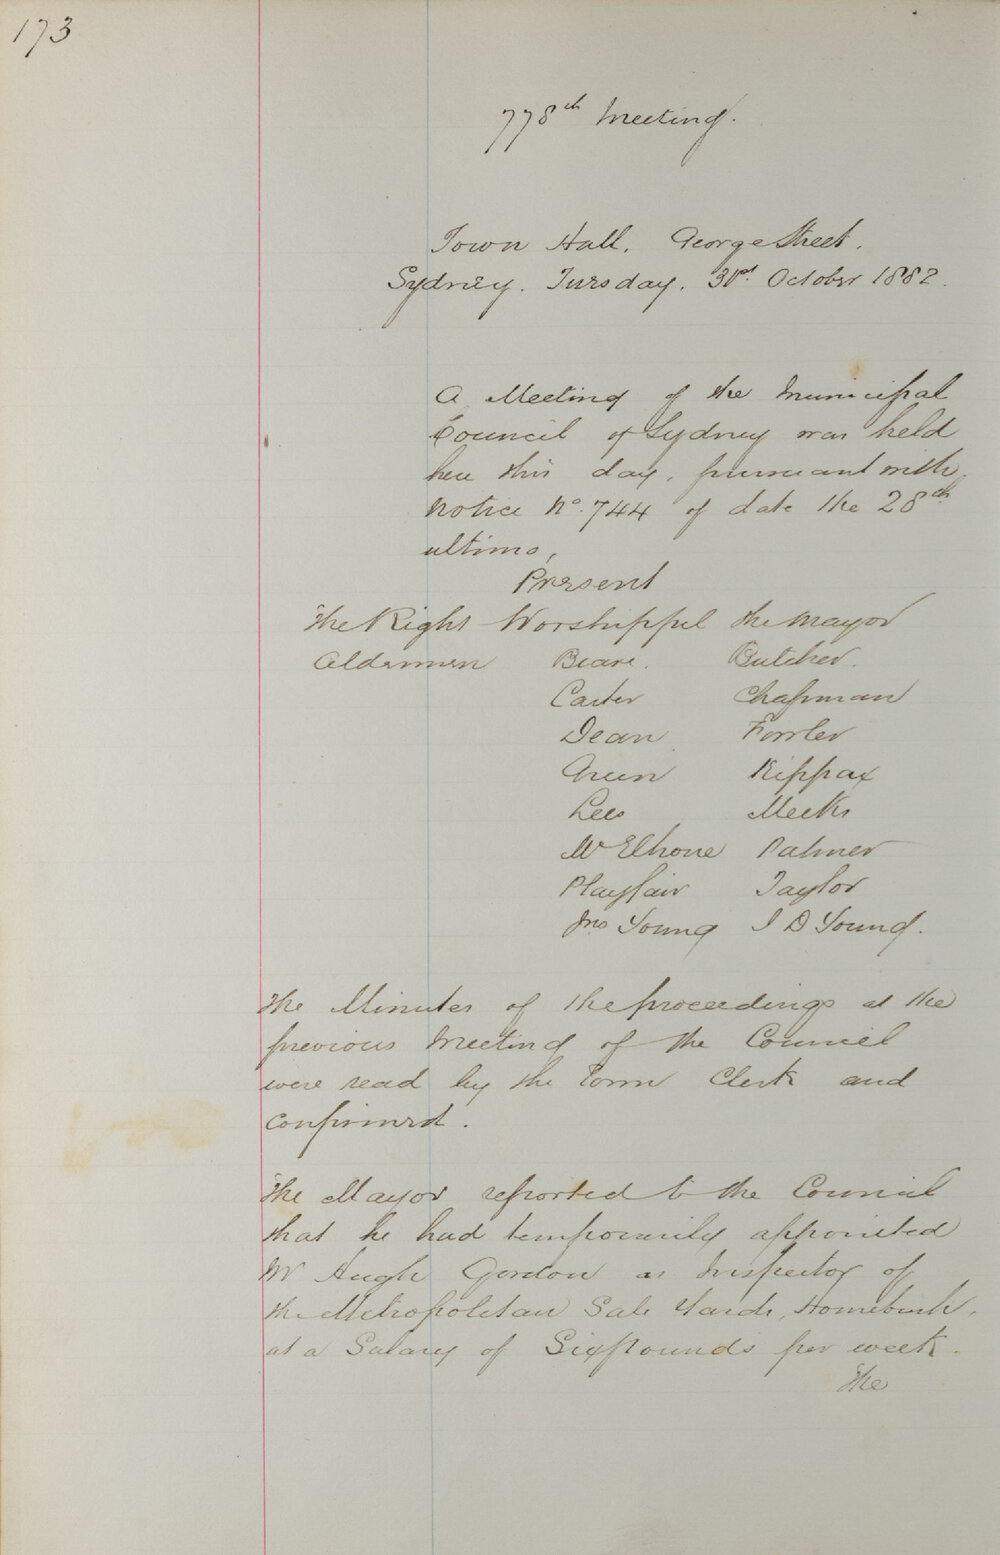 173
778th Meeting.
Town Hall, George Street.
Sydney. Tuesday. 31st. October 1882.
A Meeting of the Municipal
Council of Sydney was held
here this day, pursuant with
Notice No. 744 of date the 28th
ultimo,
Present
The Right Worshippful the Mayor
Aldermen Beare. Butcher.
Carter Chapman
Dean Fowler
Green Kippax
Lees Meeks
McElhone Palmer
Playfair Taylor
Jno Young J D Young.
The Minutes of the proceedings at the
previous Meeting of the Council
were read by the Town Clerk and
Confirmed.
The Mayor reported to the Council
that he had temporarily appointed
Mr Hugh Gordon as Inspector of
the Metropolitan Sale Yards, Homebush,
at a Salary of Six pounds per week.
The